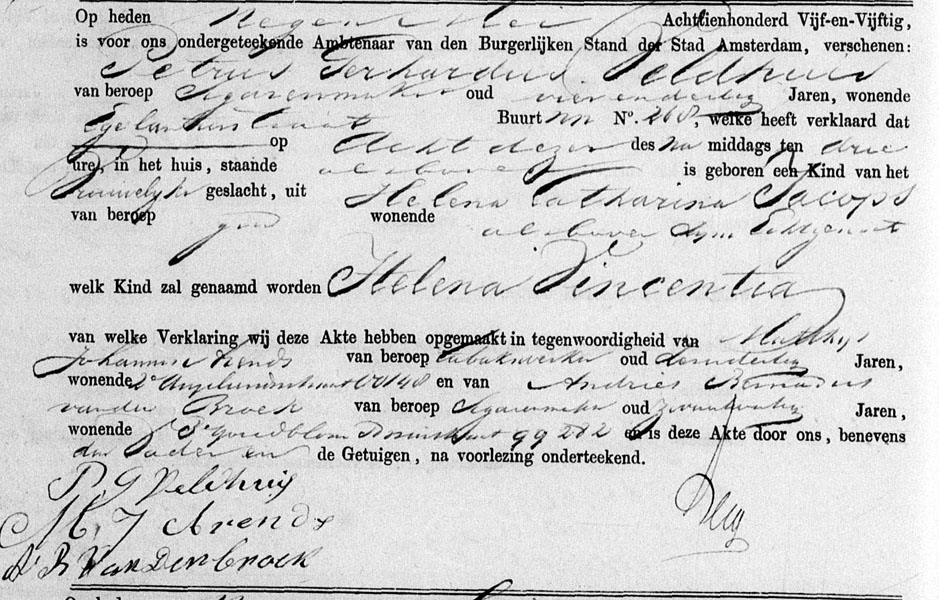 Op heden Negen Mei Achttienhonderd Vijf-en-Vijftig,
is voor ons ondergeteekende Ambtenaar van den Burgerlijken Stand der Stad Amsterdam, verschenen:
Petrus Gerhardus Veldhuis
van beroep Sigarenmaker oud vierendertig Jaren, wonende
Egelantierstraat Buurt NN N°. 268, welke heeft verklaard dat
op Acht dezer des na middags ten drie
ure, in het huis, staande als boven is geboren een Kind van het
Vrouwelijke geslacht, uit Helena Catharina Jacops
van beroep geen wonende als boven zijne Echtgenoot
welk Kind zal genaamd worden Helena Vincentia
van welke Verklaring wij deze Akte hebben opgemaakt in tegenwoordigheid van Matthijs
Johannes Arends van beroep tabakswerker oud Jaren,
wonende 2e 148 en van Andries Bernardus
van den Broek van beroep Sigarenmaker oud Jaren,
wonende Goudbloem Dwarsstraat 99 282 en is deze Akte door ons, benevens
den Vader en de Getuigen, na voorlezing onderteekend.
P G Veldhuis
M. J Arends
A B Van Den broek